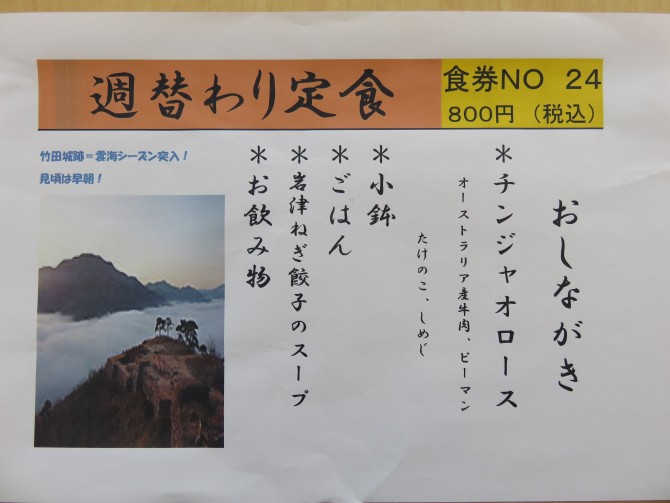 週替わり定食
食券NO 24
800円 （税込）
おしながき
＊チンジャオロース
オーストラリア産牛肉、ピーマン
たけのこ、しめじ
＊小鉢
＊ごはん
＊岩津ねぎ餃子のスープ
＊お飲み物
竹田城跡＝雲海シーズン突入！
見頃は早朝！